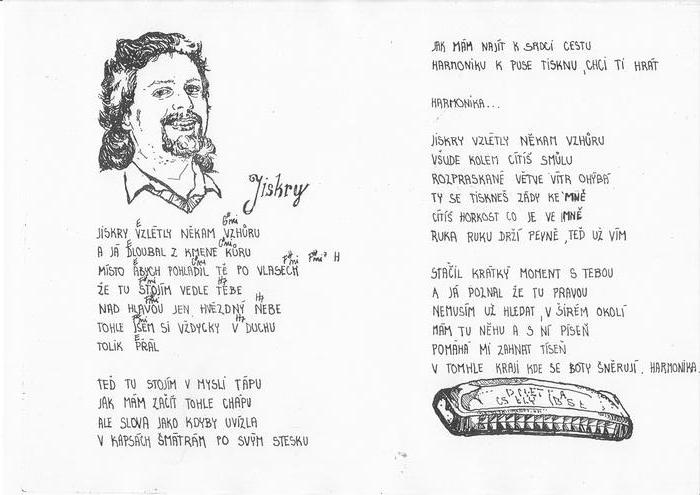 Jiskry
E G#mi
JISKRY VZLÉTLY NĚKAM VZHŮRU
E G#mi
A JÁ DLOUBAL Z KMENE KŮRU
E G#mi F#mi F#mi7 H
MÍSTO ABYCH POHLADIL TĚ PO VLASECH
F#mi H7
ŽE TU STOJÍM VEDLE TEBE
F#mi H7
NAD HLAVOU JEN HVĚZDNÝ NEBE
F#mi H7
TOHLE JSEM SI VŽDYCKY V DUCHU
E
TOLIK PŘÁL
TEĎ TU STOJÍM V MYSLI TÁPU
JAK MÁM ZAČÍT TOHLE CHÁPU
ALE SLOVA JAKO KDYBY UVÍZLA
V KAPSÁCH ŠMÁTRÁM PO SVÝM STESKU
JAK MÁM NAJÍT K SRDCI CESTU
HARMONIKU K PUSE TISKNU, CHCI TI HRÁT
HARMONIKA...
JISKRY VZLÉTLY NĚKAM VZHŮRU
VŠUDE KOLEM CÍTÍŠ SMŮLU
ROZPRASKANÉ VĚTVE VÍTR OHÝBÁ
TY SE TISKNEŠ ZÁDY KE MNĚ
CÍTÍŠ HORKOST CO JE VE MNĚ
RUKA RUKU DRŽÍ PEVNĚ, TEĎ UŽ VÍM
STAČIL KRÁTKÝ MOMENT S TEBOU
A JÁ POZNAL ŽE TU PRAVOU
NEMUSÍM UŽ HLEDAT, V ŠIRÉM OKOLÍ
MÁM TU NĚHU A S NÍ PÍSEŇ
POMÁHÁ MI ZAHNAT TÍSEŇ
V TOMHLE KRAJI KDE SE BOTY ŠNĚRUJÍ. HARMONIKA.